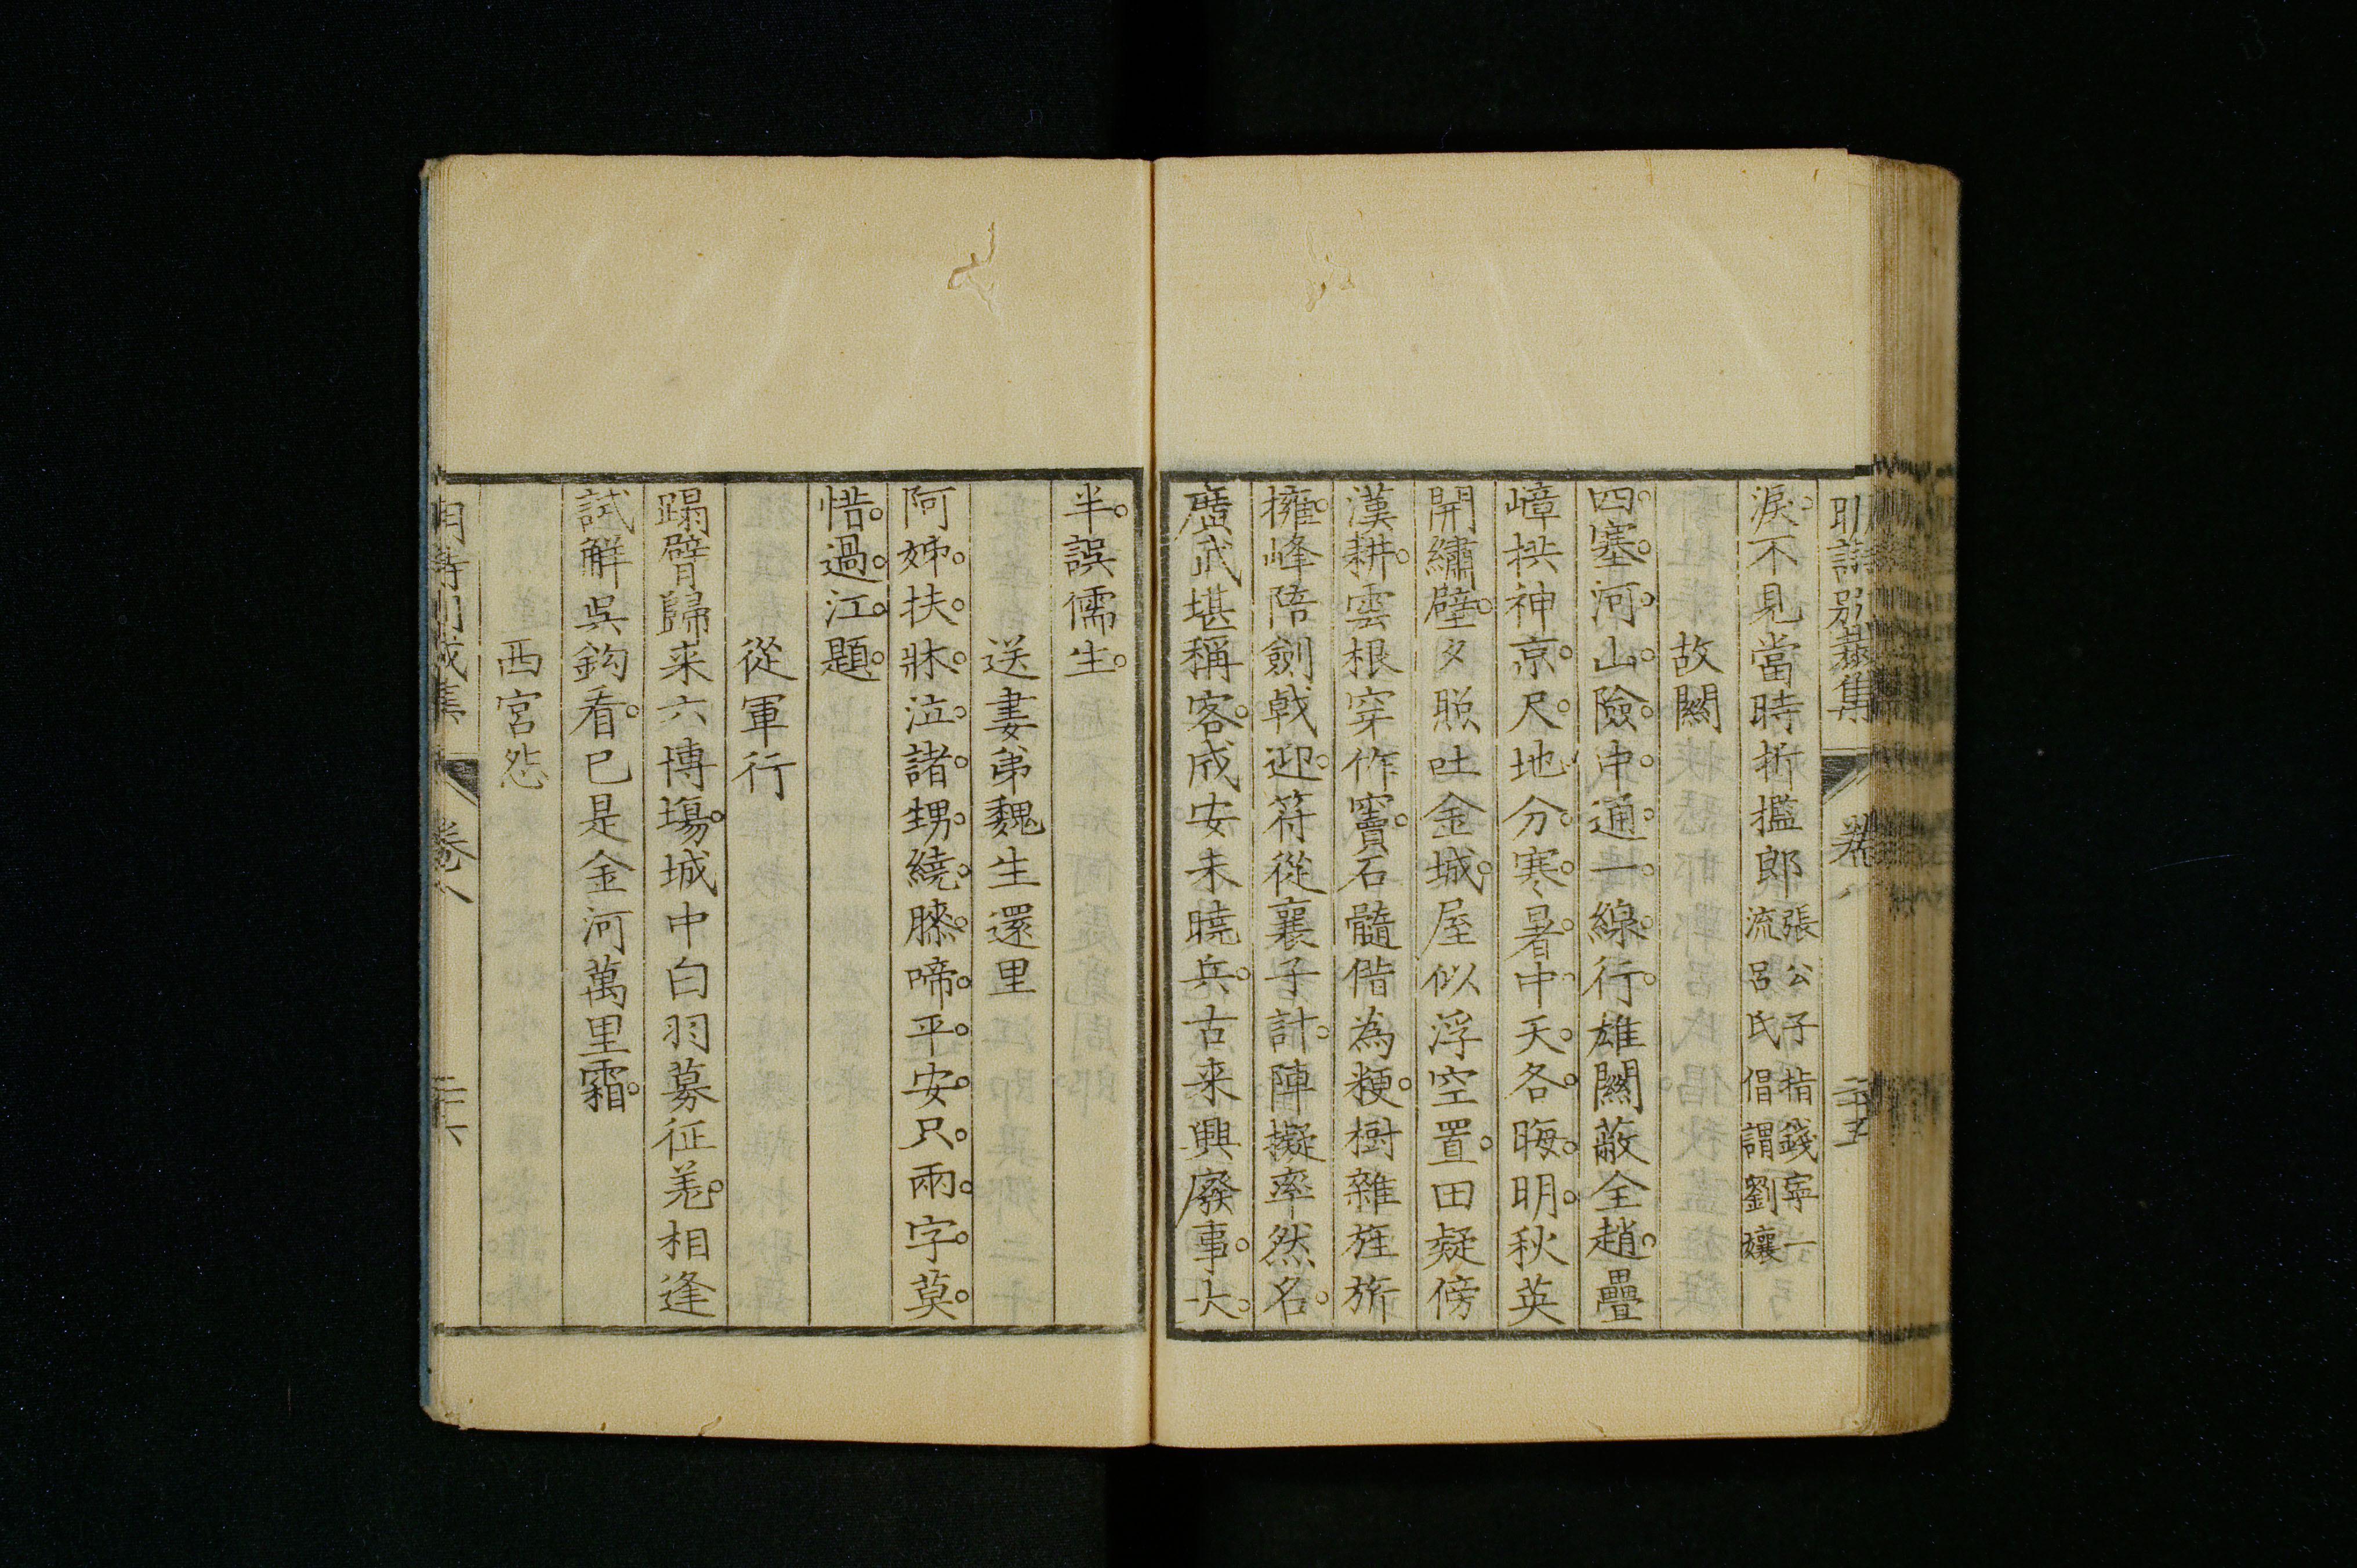 明詩別裁集 卷八 二十五
淚。不見當時折檻郎張公子指錢寧一流呂氏倡謂劉孃
故關
四。塞。河。山。險。中。通。一。線。行。雄關蔽全趙。疊
嶂拱神京。尺。地。分。寒。暑。中。天。各。晦。明。秋英
開繡壁。夕照吐金城。屋似浮空置。田疑傍
漢耕。雲根穿作竇。石髓偕為粳。樹雜旌旂
擁。峰陪劍戟迎。符從襄子計。陣擬率然名。
廣武堪稱客。成安未曉兵。古来興廢事。大。
半。誤儒生。
送妻弟魏生還里
阿姊。扶。牀。泣。諸。甥。繞。膝。啼。平。安。只。兩。字。莫。
惜。過。江。題。
從軍行
蹋臂歸来六博場。城中白羽募征羌。相逢
試解吳鈎看。已是金河萬里霜。
西宮怨
明詩別裁集 卷八 二十六